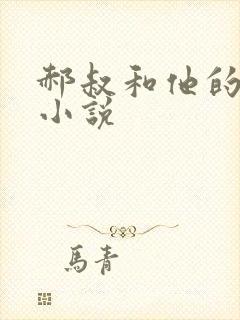 郝叔和他的
小说
馬青